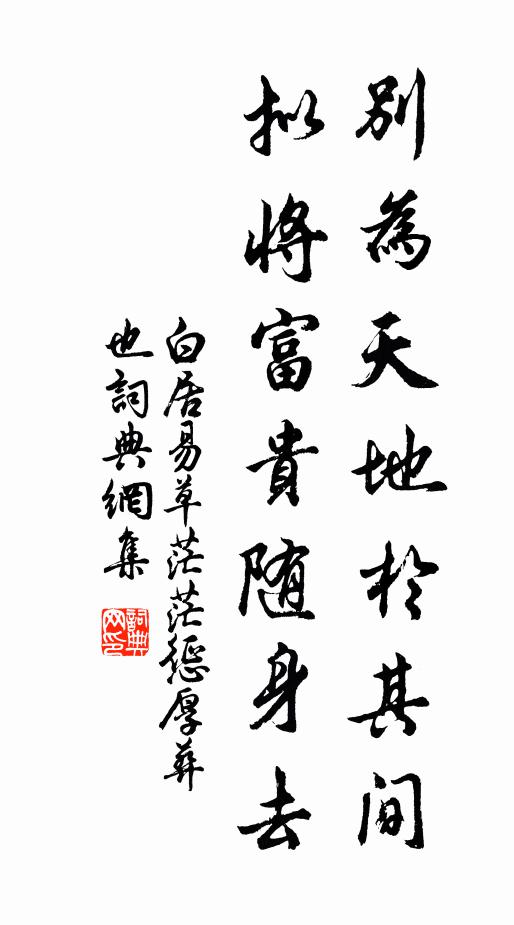 別為天地於其間
拟將富貴随身去
白居易草茫茫懲厚葬
也詞典網集
詞典網印